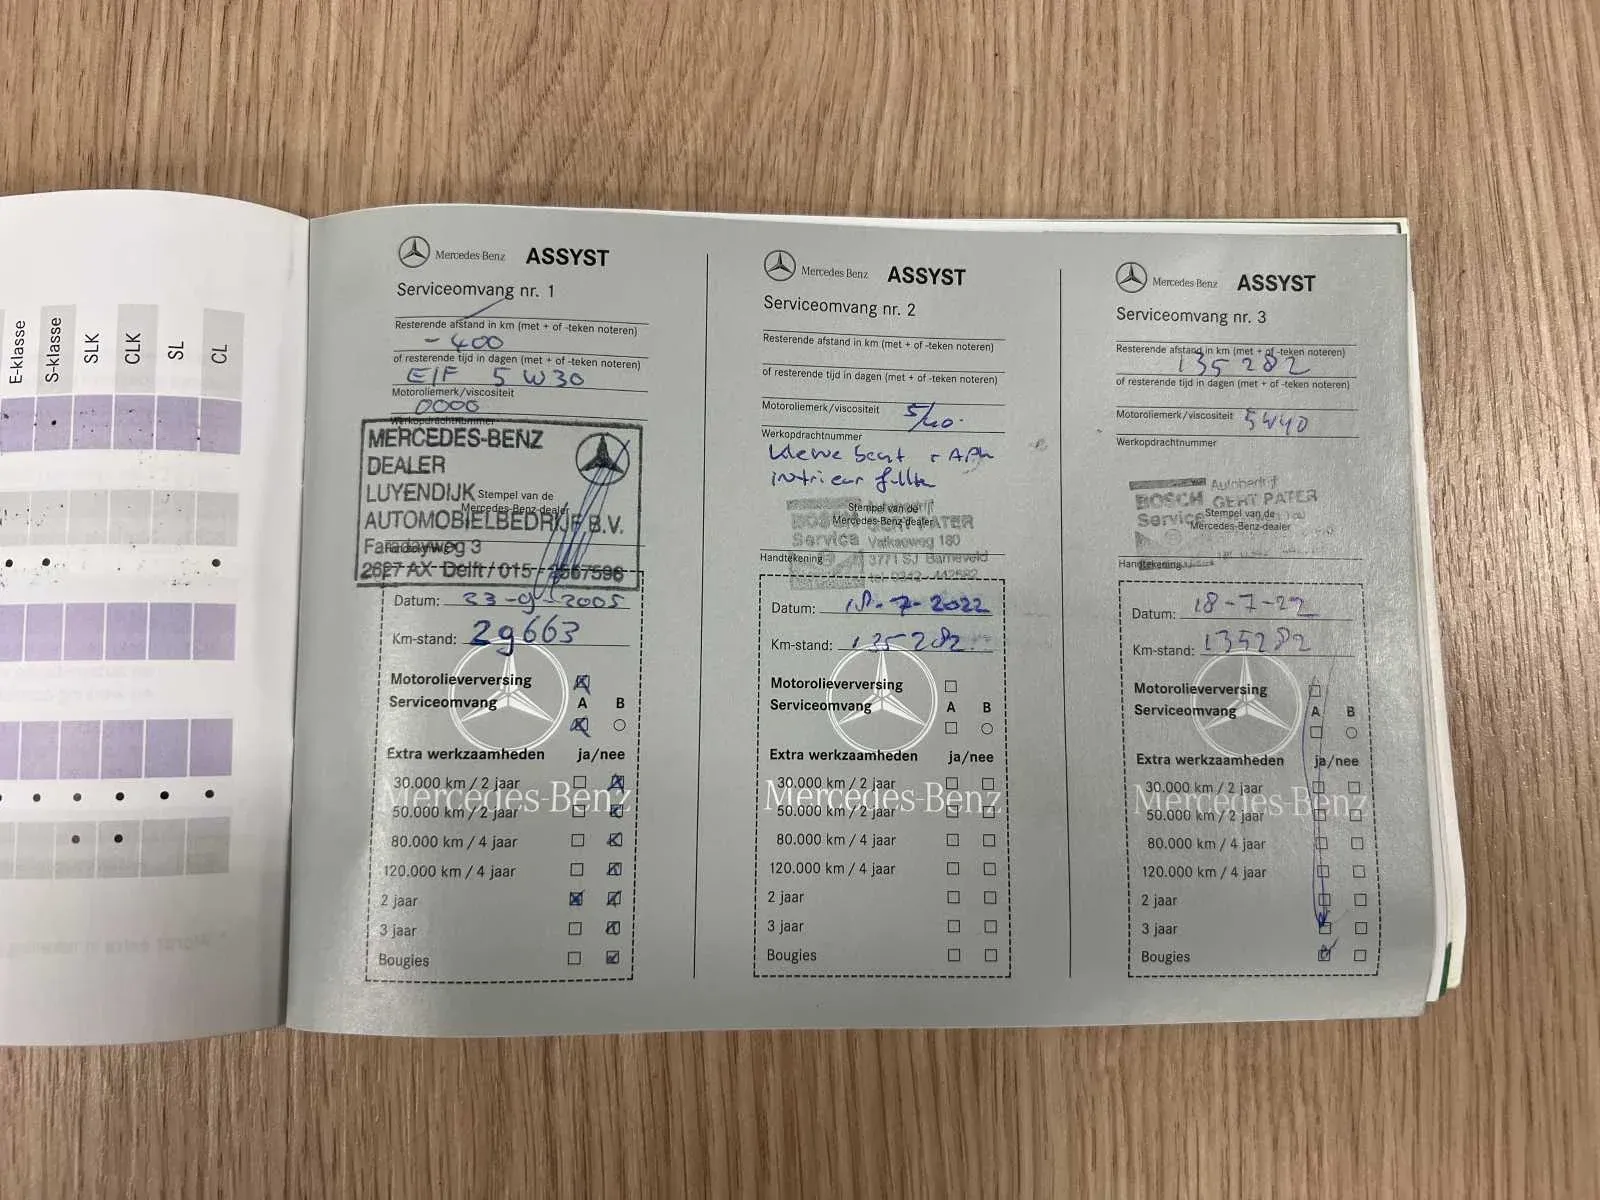 E-klasse
S-klasse
SLK
CLK
SL
CL
Mercedes-Benz ASSYST
Serviceomvang nr. 1
Resterende afstand in km (met + of -teken noteren)
- 400
of resterende tijd in dagen (met + of -teken noteren)
5W30
Motoroliemerk/viscositeit
0000
Werkopdrachtnummer
MERCEDES-BENZ
DEALER
LUYENDIJK
AUTOMOBIELBEDRIJF B.V.
Faradayweg 3
2627 AX Delft / 015 - 2567596
Stempel van de
Mercedes-Benz-dealer
Datum: 23-9-2005
Km-stand: 29663
Motorolieverversing
Serviceomvang A B
Extra werkzaamheden ja/nee
30.000 km / 2 jaar
50.000 km / 2 jaar
80.000 km / 4 jaar
120.000 km / 4 jaar
2 jaar
3 jaar
Bougies
Mercedes-Benz
Mercedes-Benz ASSYST
Serviceomvang nr. 2
Resterende afstand in km (met + of -teken noteren)
of resterende tijd in dagen (met + of -teken noteren)
Motoroliemerk/viscositeit 5/40.
Werkopdrachtnummer
Kleine beurt + APK
Stempel van de
Mercedes-Benz-dealer
BOSCH GERT PATER
Service Valkseweg 180
3771 SJ Barneveld
Handtekening
Datum: 18-7-2022
Km-stand: 135282
Motorolieverversing
Serviceomvang A B
Extra werkzaamheden ja/nee
30.000 km / 2 jaar
50.000 km / 2 jaar
80.000 km / 4 jaar
120.000 km / 4 jaar
2 jaar
3 jaar
Bougies
Mercedes-Benz
Mercedes-Benz ASSYST
Serviceomvang nr. 3
Resterende afstand in km (met + of -teken noteren)
135282
of resterende tijd in dagen (met + of -teken noteren)
Motoroliemerk/viscositeit 5W40
Werkopdrachtnummer
Autobedrijf
BOSCH GERT PATER
Service
Stempel van de
Mercedes-Benz-dealer
Handtekening
Datum: 18-7-22
Km-stand: 135282
Motorolieverversing
Serviceomvang A B
Extra werkzaamheden ja/nee
30.000 km / 2 jaar
50.000 km / 2 jaar
80.000 km / 4 jaar
120.000 km / 4 jaar
2 jaar
3 jaar
Bougies
Mercedes-Benz